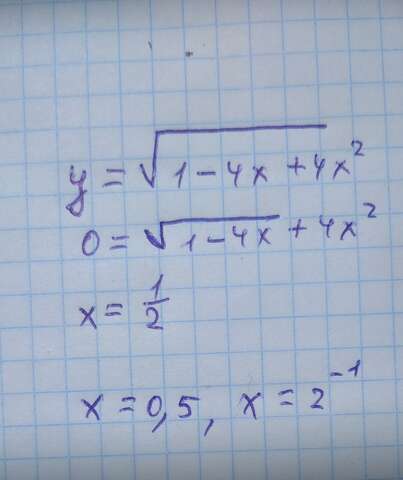 y = √(1 - 4x + 4x²)
0 = √(1 - 4x) + 4x²
x = 1/2
x = 0,5, x = 2⁻¹